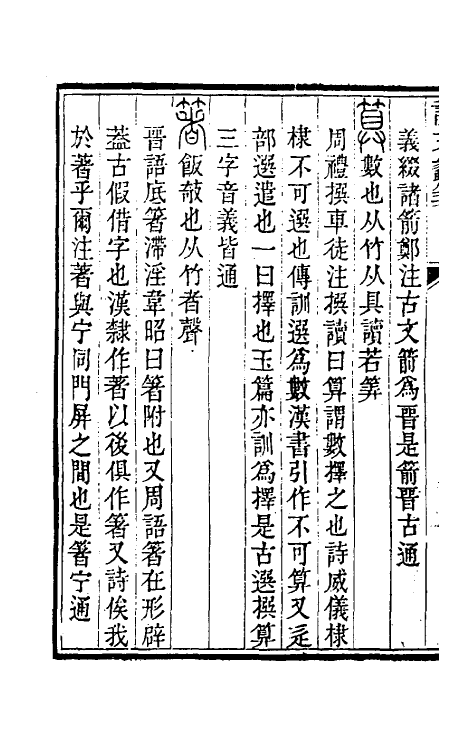 義綴諸箭鄭注古文箭爲晋是箭晋古通
數也从竹从具讀若筭
周禮撰車徒注撰讀曰算謂數擇之也詩威儀棣
棣不可選也傳訓選爲數漢書引作不可算又辵
部選遣也一曰擇也玉篇亦訓爲擇是古選撰算
三字音義皆通
箸飯攲也从竹者聲
晉語底箸滯淫韋昭曰箸附也又周語箸在形辟
葢古假借字也漢隸作著以後俱作箸又詩俟我
於著乎爾注著與宁同門屏之間也是箸宁通